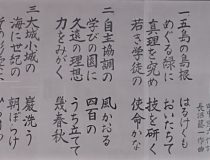 一 五島の島根 はるけくも
めぐる緑に おいたちて
真理を究め 技を研く
若き学徒の 使命かな
二 自主協調の 風かおる
学びの園に 四百の
久遠の理想 うち立てて
力をみがく 幾春秋
三 大城小城の 巌洗う
海に世紀の 朝ぼらけ